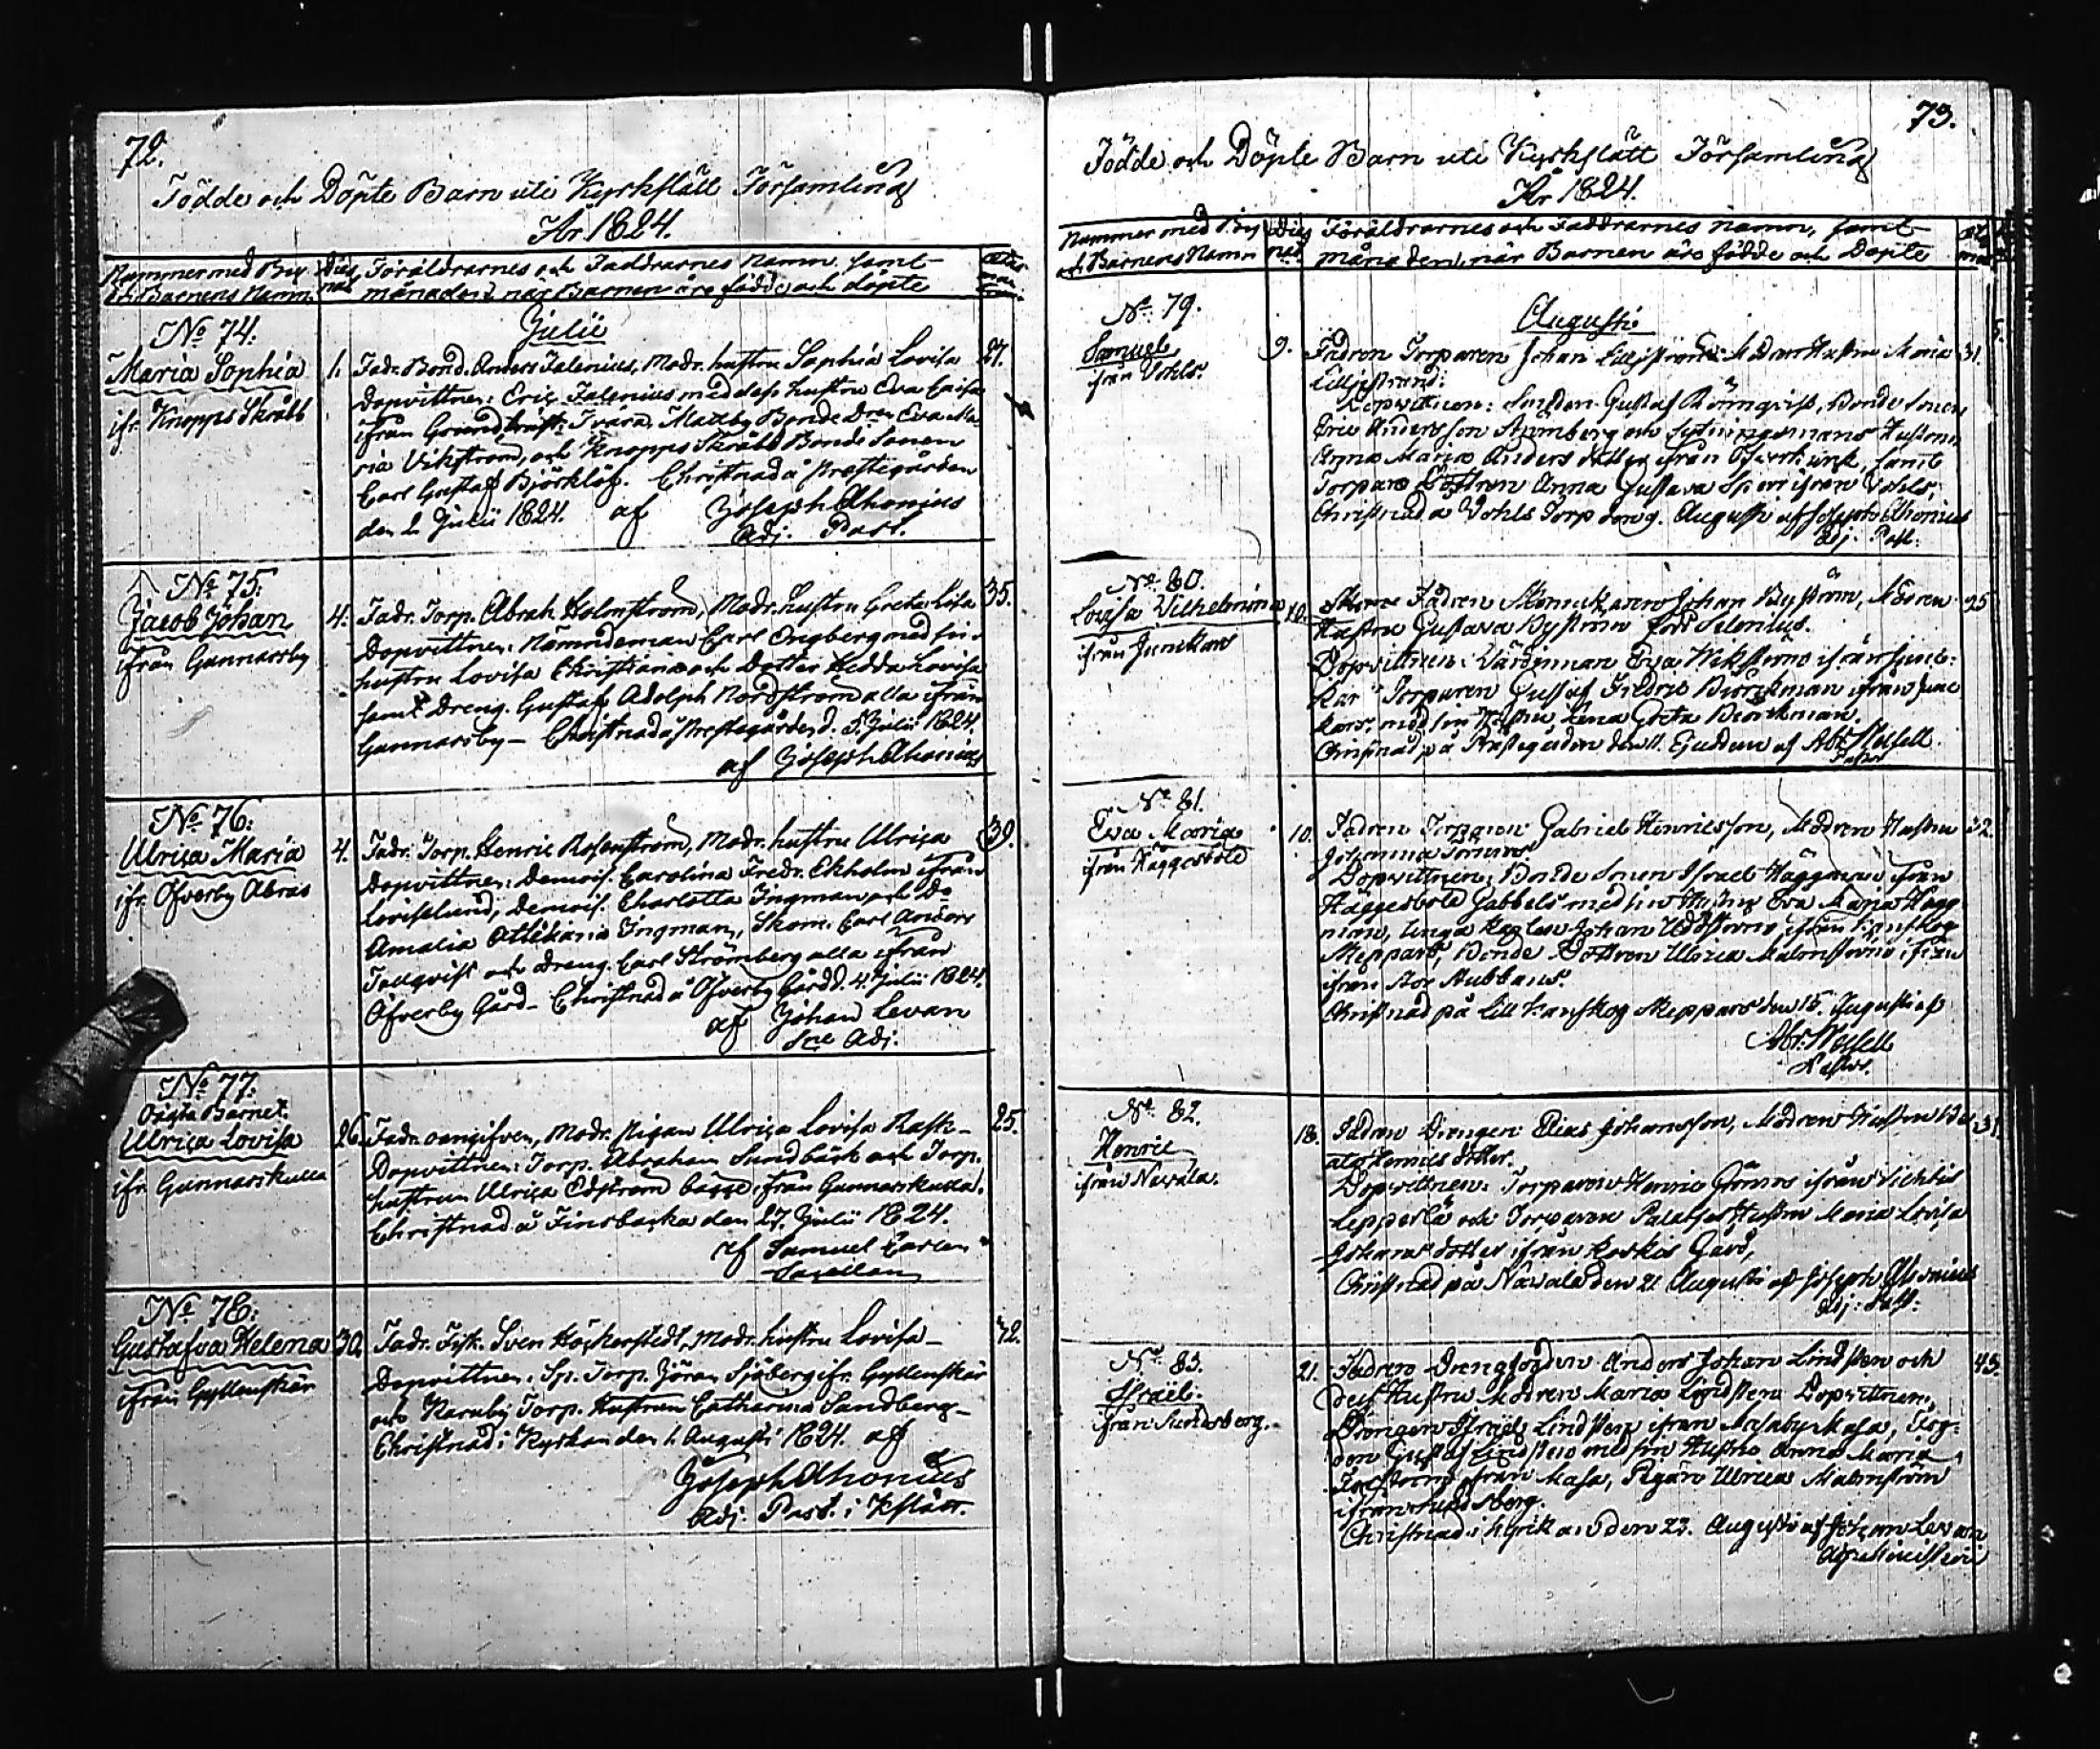 72.
Födde och Döpte Barn uti Kyrkslätt Församling
År 1824.
Nummer med By. och Barnens Namn
Dies nat
Föräldrarnes och Faddrarnes namn, samt
månaden, när Barnen äro födde och döpte
Julii
No 74.
Maria Sophia
ifr. Knopps Skråbb
1.
Fadr. Bond. Anders Falenius, Modr. hustru Sophia Lovisa
27.
Dopvittnen: Eric Falenius med dess hustru Eva Caisa
ifrån Grundträsk: Ivars, Mattby Bonde Dren Eva Ma-
ria Vikström, och Knopps Skråbb Bonde Sonen
Carl Gustaf Björklöf. Christnad å Prestegården
den 2 Julii 1824. af Joseph Ahonius
Adj. Past.
No 75.
Jacob Johan
ifrån Gunnarsby
4.
Fadr. Torp. Abrah. Holmström, Modr. hustru Greta Lisa
35.
Dopvittnen: Nämndeman Carl Engberg med sin
hustru Lovisa Christiana och Dotter Hedda Lovisa
samt Dreng. Gustaf Adolph Nordström alla ifrån
Gunnarsby – Christnad å Prestegården d. 5 Julii 1824.
af Joseph Ahonius
No 76.
Ulrica Maria
ifr. Öfverby Abras
4.
Fadr. Torp. Henric Rosenström, Modr. hustru Ulrica
39.
Dopvittnen: Demois. Carolina Fredr. Ekholm ifrån
Loviselund, Demois. Charlotta Ingman och Do
Amalia Ingman, Skom. Carl Anders
Tallqvist och dreng. Carl Strömberg alla ifrån
Öfverby Gård – Christnad å Öfverby Gård d. 4 Julii 1824.
af Johan Levan
Sne Adj.
No 77.
Oägta Barnet.
Ulrica Lovisa
ifr. Gunnarskulla
26.
Fadr. oangifven, Modr. Pigan Ulrica Lovisa Rask –
25.
Dopvittnen: Torp. Abraham Sundbäck och Torp.
hustrun Ulrica Edström bägge ifrån Gunnarskulla.
Christnad å Finsbacka den 27 Julii 1824.
af Samuel
Sacellan
No 78.
Gustafva Helena
ifrån Gyllenskär
30.
Fadr. Fisk. Sven Höckerstedt, Modr. hustru Lovisa –
42.
Dopvittnen: Sp. Torp. Jöran Sjöberg ifr. Gyllenskär
och Karuby Torp. Hustrun Catharina Sandberg –
Christnad i Kyrkan den 1 Augusti 1824. af
Joseph Ahonius
Adj. Past. i Kslätt.
73.
Födde och Döpte Barn uti Kyrkslätt Församling
År 1824.
Nummer med By och Barnens Namn
Dies nat
Föräldrarnes och Faddrarnes namn, samt
månaden, när Barnen äro födde och Döpte
Augusti
No 79.
Samuel
ifrån Vohls.
9.
Fadren Torparen Johan Lilljestrand: Modren Hustru Maria
31.
Lilljestrand:
Dopvittnen: Gustaf Rönnqvist, Bonde Sonen
Eric Andersson Strömberg och Hustrun
Anna Maria Anders dotter ifrån samt
Torpare Dottren Anna Gustava ifrån Vohls,
Christnad å Vohls Torp den 9. Augusti af Joseph Ahonius
Adj. Past.
No 80.
Lovisa Wilhelmina
ifrån Junkars
10.
Fadren Johan Byström, Modren
25
Hustru Gustava Byström född Selenius.
Dopvittnen: Värdinnan Eva Wikström ifrån Junc-
kars Torparen Gustaf Fredric Björckman ifrån Junc
kars med sin Hustru Lena Greta Björckman.
Christnad på Prästegården den 11. af Abr. Wesell.
Pastor
No 81.
Eva Maria
ifrån Häggesböle
10.
Fadren Torparen Gabriel Henricsson, Modren Hustru
32.
Johanna
Dopvittnen: Bonde Sonen Israel Häggman ifrån
Häggesböle Gabbels med sin Hustru Eva Maria Hägg
man, unga Karlen Johan ifrån
Skeppars, Bonde Dottren Ulrica Malmström ifrån
ifrån Stor Kubbans.
Christnad på Lill Kanskog Skeppars den 15. Augusti af
Abr. Wesell
Pastor.
No 82.
Henric
ifrån Navala.
18.
Fadren Drengen Elias Johansson, Modren Hustru
31.
Henrics dotter.
Dopvittnen: Torparen Henric ifrån Vichtis
och Torparen Hustru Maria Lovisa
Johans dotter ifrån Koskis Gård,
Christnad på Navala den 21 Augusti af Joseph Ahonius
Adj. Past.
No 83.
Israël.
ifrån Sundsberg.
21.
Fadren Drengfogden Anders Johan Lindsten och
45.
dess Hustru Modren Maria Lindsten Dopvittnen:
Drengen Israël Lindsten ifrån Masaby Masa, Fog-
den Gustaf Lindsten med sin Hustru Anna Maria
ifrån Masa, Pigan Ulrica Malmström
ifrån Sundsberg.
Christnad i Kyrkan den 23. Augusti af Johan Levan